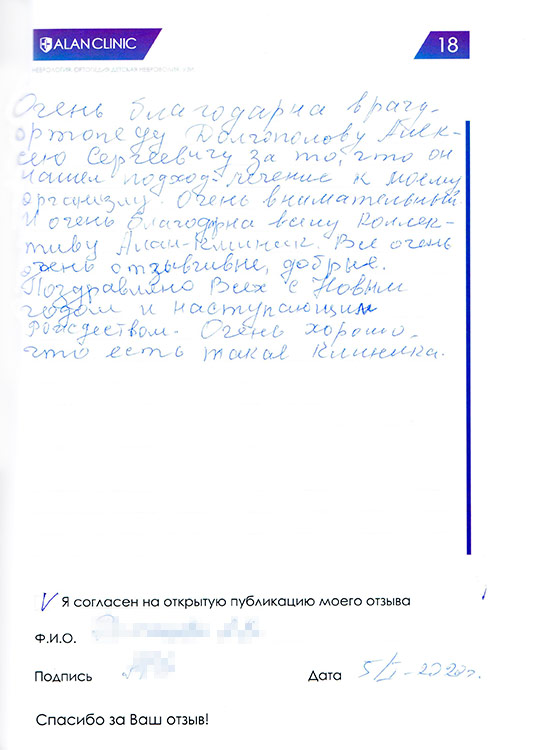 ALAN CLINIC
18
НЕВРОЛОГИЯ, ОРТОПЕДИЯ
Очень благодарна врачу-
ортопеду Долгополову Алек-
сею Сергеевичу за то, что он
нашел подход-лечение к моему
организму. Очень внимательный.
И очень благодарна всему Коллек-
тиву Алан-Клиник. Все очень
очень отзывчивые, добрые.
Поздравляю Всех с Новым
годом и наступающим
Рождеством. Очень хорошо,
что есть такая Клиника.
V Я согласен на открытую публикацию моего отзыва
Ф.И.О.
Подпись
Дата 5/I-2020г.
Спасибо за Ваш отзыв!